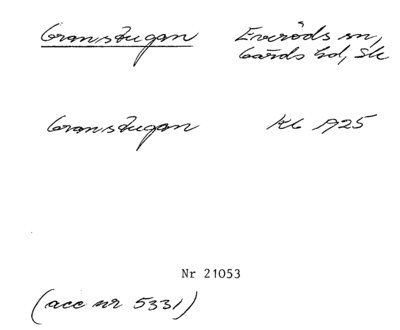 Granstugan Everöds sn,
Gärds hd, Sk
Granstugan Kb 1925
Nr 21053
(acc nr 5331)